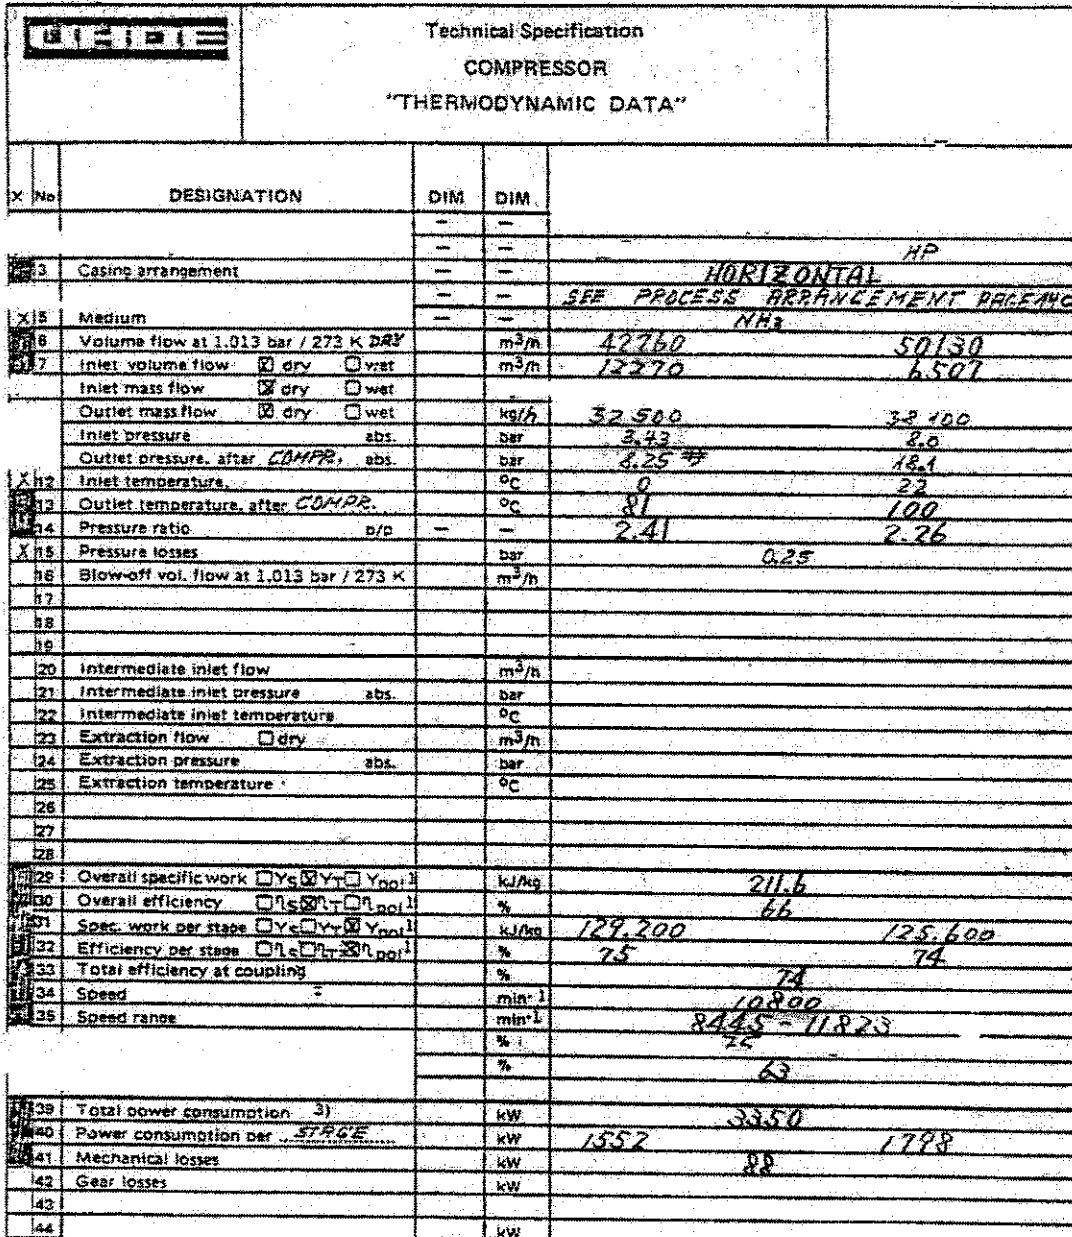 GHH
Technical Specification
COMPRESSOR
"THERMODYNAMIC DATA"
X No DESIGNATION DIM DIM
— —
— — HP
3 Casing arrangement — — HORIZONTAL
— — SEE PROCESS ARRANGEMENT PAGE
X 5 Medium — — NH3
6 Volume flow at 1.013 bar / 273 K DRY m³/h 42760 50130
7 Inlet volume flow ☒ dry ☐ wet m³/h 12270 6507
Inlet mass flow ☒ dry ☐ wet
Outlet mass flow ☒ dry ☐ wet kg/h 32500 38100
Inlet pressure abs. bar 3.43 8.0
Outlet pressure, after COMPR. abs. bar 8.25 18.1
X 12 Inlet temperature. °C 0 22
13 Outlet temperature, after COMPR. °C 81 100
14 Pressure ratio p/p — — 2.41 2.26
X 15 Pressure losses bar 0.25
16 Blow-off vol. flow at 1.013 bar / 273 K m³/h
17
18
19
20 Intermediate inlet flow m³/h
21 Intermediate inlet pressure abs. bar
22 Intermediate inlet temperature °C
23 Extraction flow ☐ dry m³/h
24 Extraction pressure abs. bar
25 Extraction temperature °C
26
27
28
29 Overall specific work ☐ Ys ☒ YT ☐ Ypol 1 kJ/kg 211.6
30 Overall efficiency ☐ ηs ☒ ηT ☐ ηpol 1 % 66
31 Spec. work per stage ☐ Ys ☐ YT ☒ Ypol 1 kJ/kg 129.200 125.600
32 Efficiency per stage ☐ ηs ☐ ηT ☒ ηpol 1 % 75 74
33 Total efficiency at coupling % 74
34 Speed min-1 10800
35 Speed range min-1 8445 - 11823
%
% 63
39 Total power consumption 3) kW 3350
40 Power consumption per STAGE kW 1552 1798
41 Mechanical losses kW 88
42 Gear losses kW
43
44 kW